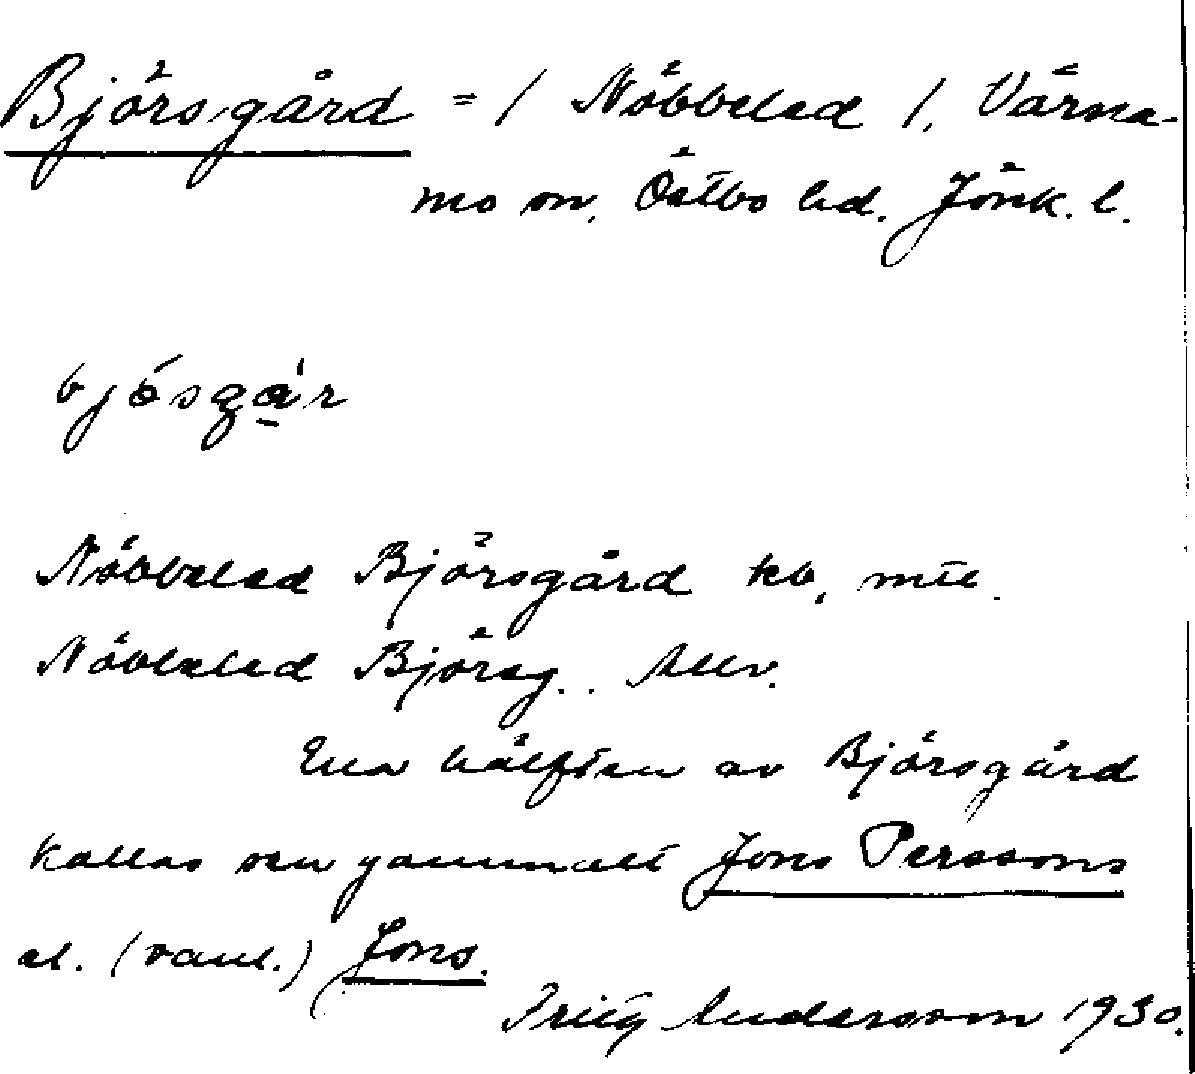 Björsgård = / Nöbbeled /, Värna-
mo sn, Östbo hd. Jönk. l.
bjósgár
Nöbbeled Björsgård kb,
Nöbbeled Björsg..
Ena hälften av Björsgård
kallas sen gammalt Jons Perssons
el. (vanl.) Jons.
Fritz Andersson 1930.